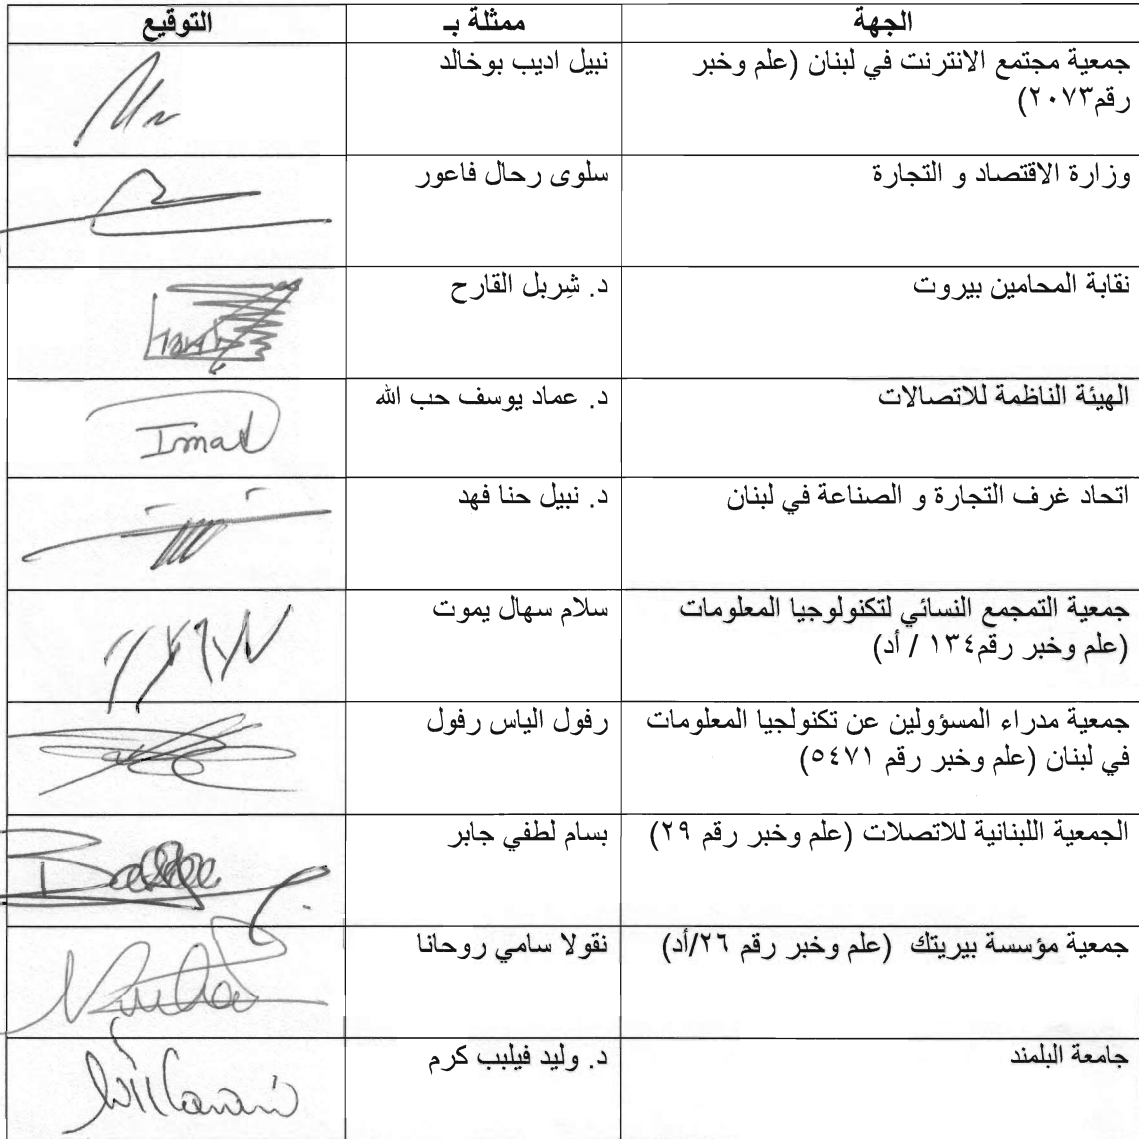 الجهة ممثلة بـ التوقيع
جمعية مجتمع الانترنت في لبنان (علم وخبر نبيل اديب بوخالد
رقم٢٠٧٣)
وزارة الاقتصاد و التجارة سلوى رحال فاعور
نقابة المحامين بيروت د. شِربل القارح
الهيئة الناظمة للاتصالات د. عماد يوسف حب الله
Imad
اتحاد غرف التجارة و الصناعة في لبنان د. نبيل حنا فهد
جمعية التمجمع النسائي لتكنولوجيا المعلومات سلام سهال يموت
(علم وخبر رقم١٣٤ / أد)
جمعية مدراء المسؤولين عن تكنولجيا المعلومات رفول الياس رفول
في لبنان (علم وخبر رقم ٥٤٧١)
الجمعية اللبنانية للاتصلات (علم وخبر رقم ٢٩) بسام لطفي جابر
جمعية مؤسسة بيريتك (علم وخبر رقم ٢٦/أد) نقولا سامي روحانا
جامعة البلمند د. وليد فيليب كرم